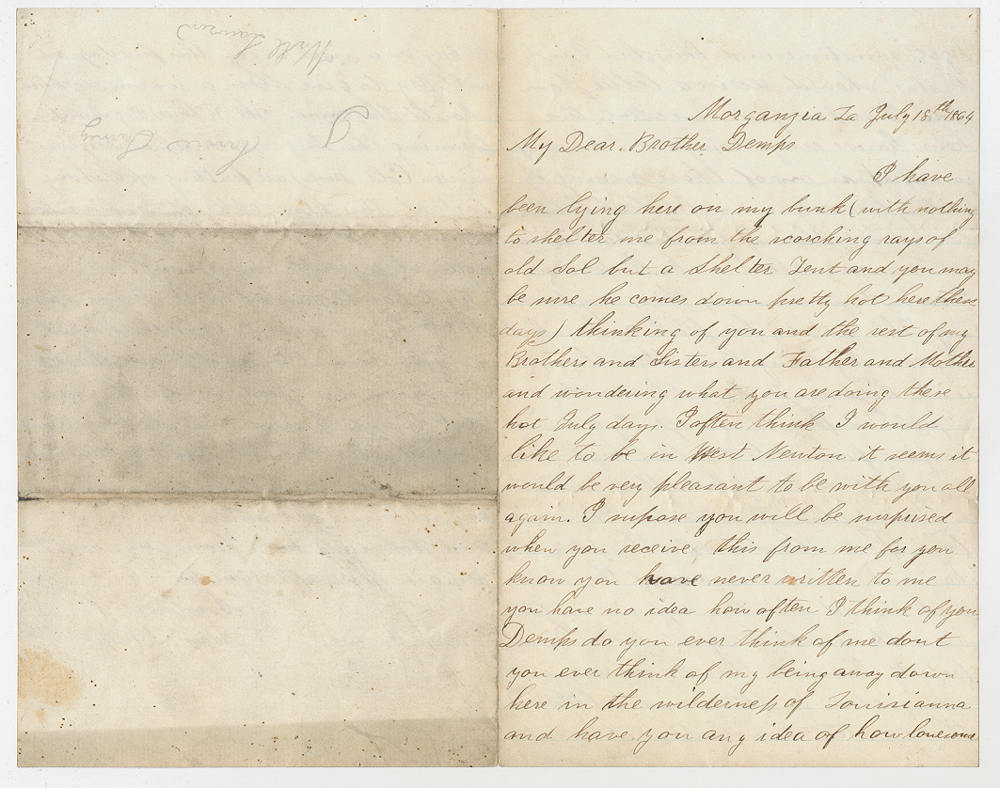 Morganzia La July 18th 1864
My Dear. Brother Demps
I have
been lying here on my bunk (with nothing
to shelter me from the scorching rays of
old Sol but a Shelter Tent and you may
be sure he comes down pretty hot here these
days) thinking of you and the rest of my
Brothers and Sisters and Father and Mother
and wondering what you are doing these
hot July days. I often think I would
like to be in West Newton it seems it
would be very pleasant to be with you all
again. I supose you will be surprised
when you receive this from me for you
know you have never written to me
you have no idea how often I think of you
Demps do you ever think of me dont
you ever think of my being away down
here in the wilderness of Louisianna
and have you any idea of how lonesome